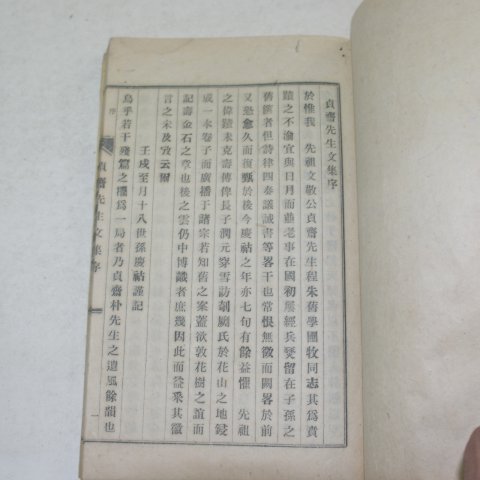 貞齋先生文集序
於惟我 先祖文敬公貞齋先生程朱舊學圃牧同志其爲貴
蹟之不渝宜與日月而並老事在國初屢經兵燹留在子孫之
舊篋者但詩律四奏議誠書等畧干也常恨無徵而闕畧於前
又恐愈久而復甄於後今慶祜之年亦七旬有餘益懼 先祖
之偉蹟未克壽傳俾長子潤元穿雪訪剞劂氏於花山之地鋟
成一本卷子而廣播于諸宗若知舊之案蓋欲敦花樹之誼而
記壽金石之章也後之雲仍中博識者庶幾因此而益采其徵
言之未及收云爾
壬戌至月十八世孫慶祜謹記
烏乎若干殘篇之擇爲一局者乃貞齋朴先生之遺風餘韻也
序
貞齋先生文集序
一